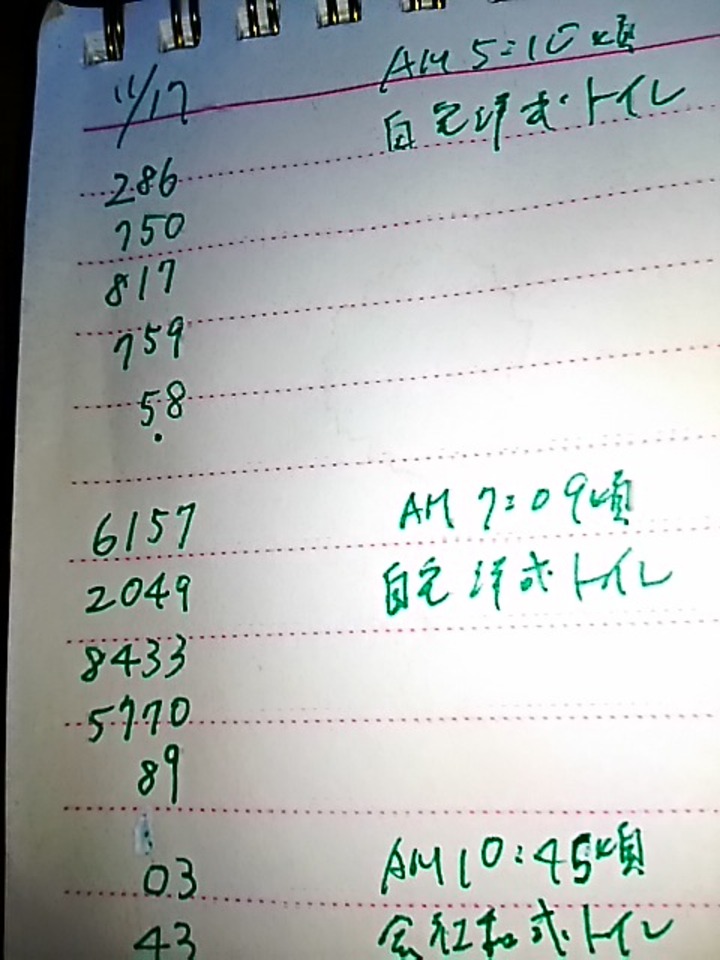 11/17 AM 5:10頃
自宅洋式トイレ
286
750
817
759
58
6157 AM 7:09頃
2049 自宅洋式トイレ
8433
5770
89
03 AM10:45頃
43 会社和式トイレ